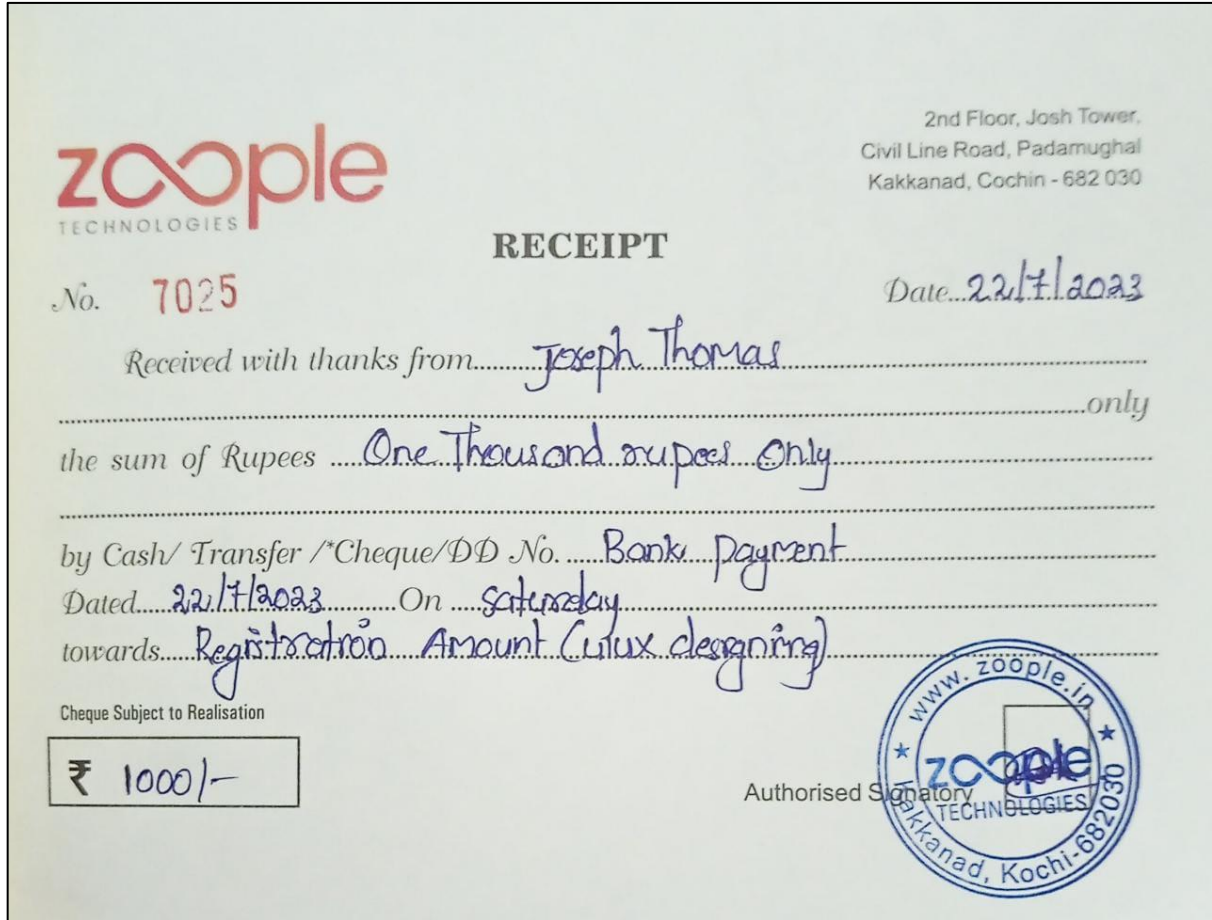 zoople
TECHNOLOGIES
2nd Floor, Josh Tower,
Civil Line Road, Padamughal
Kakkanad, Cochin - 682 030
RECEIPT
No. 7025
Date...22/7/2023
Received with thanks from...Joseph Thomas
...only
the sum of Rupees ...One Thousand rupees Only
by Cash/ Transfer /*Cheque/DD No. ...Bank Payment
Dated...22/7/2023...On ...Saturday
towards...Registration Amount (uiux designing)
Cheque Subject to Realisation
₹ 1000/-
Authorised Signatory
www.zoople.in
zoople
TECHNOLOGIES
Kakkanad, Kochi-682030